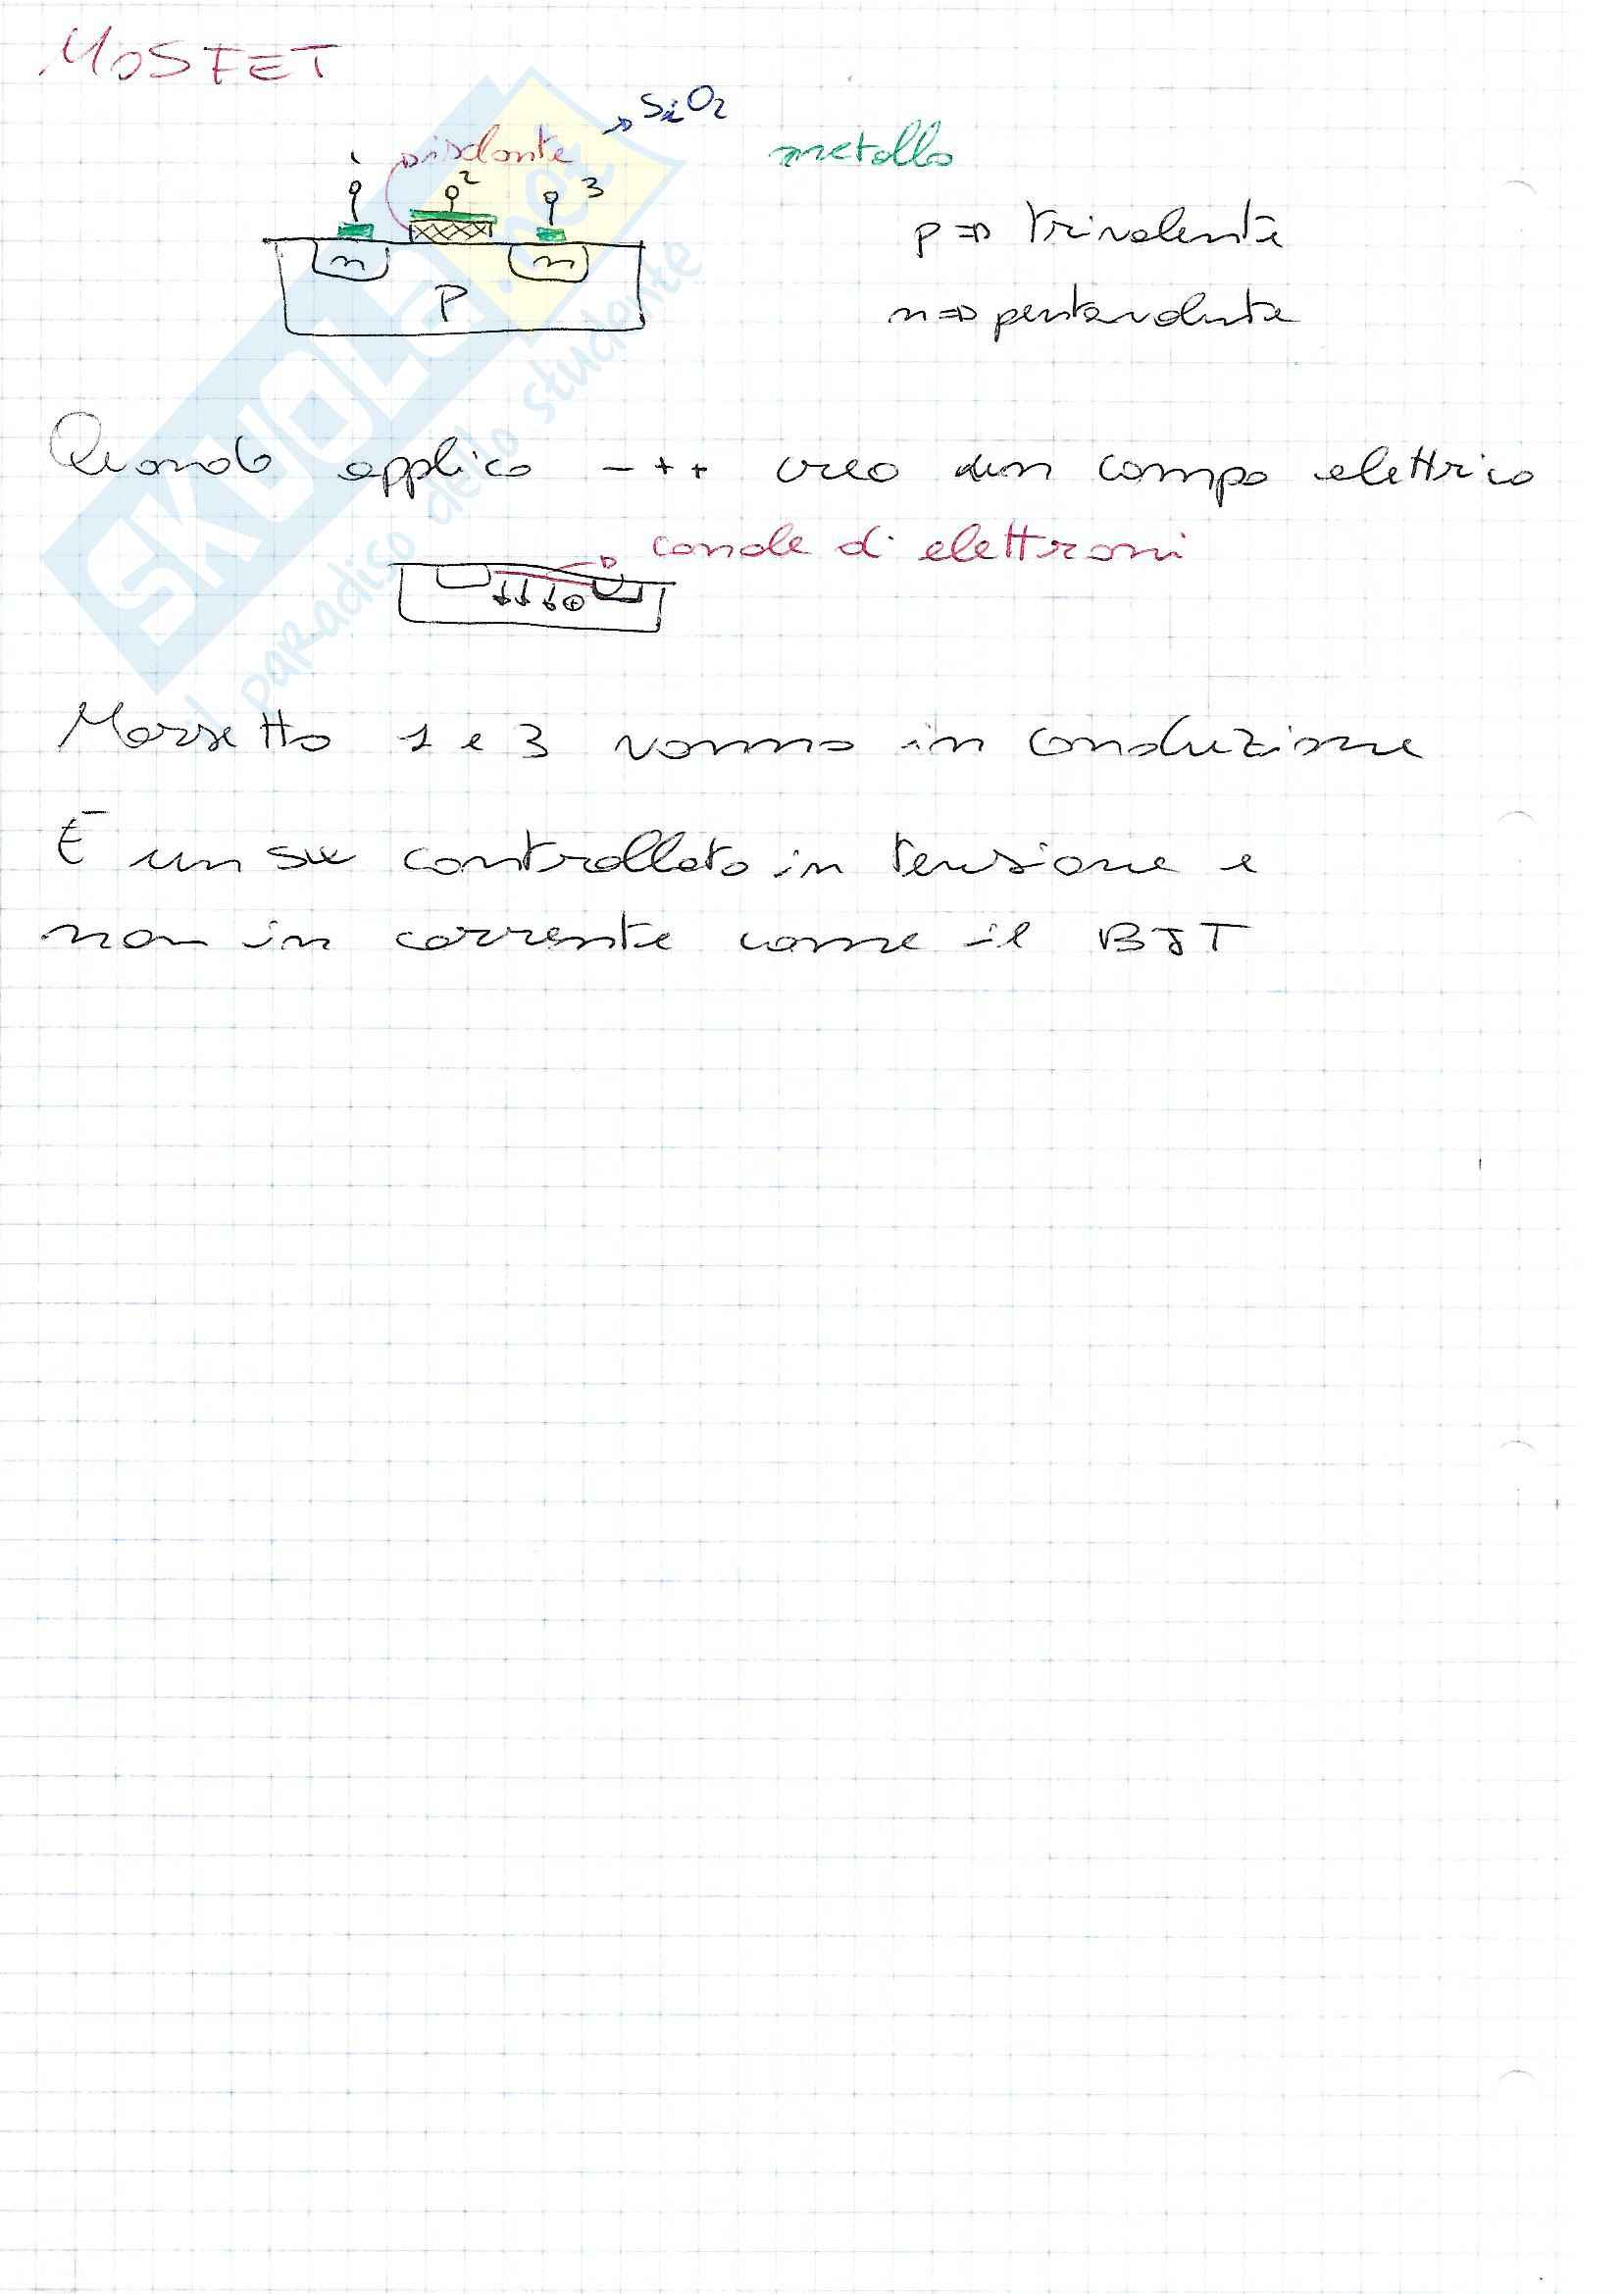 MOSFET
isolante → SiO2
metallo
1 2 3
p => trivalente
n n
P
n => pentavalente
Quando applico - + + creo un campo elettrico
canale di elettroni
+
Morsetto 1 e 3 vanno in conduzione
È un sw controllato in tensione e
non in corrente come il BJT
SKUOLA.net
il paradiso dello studente